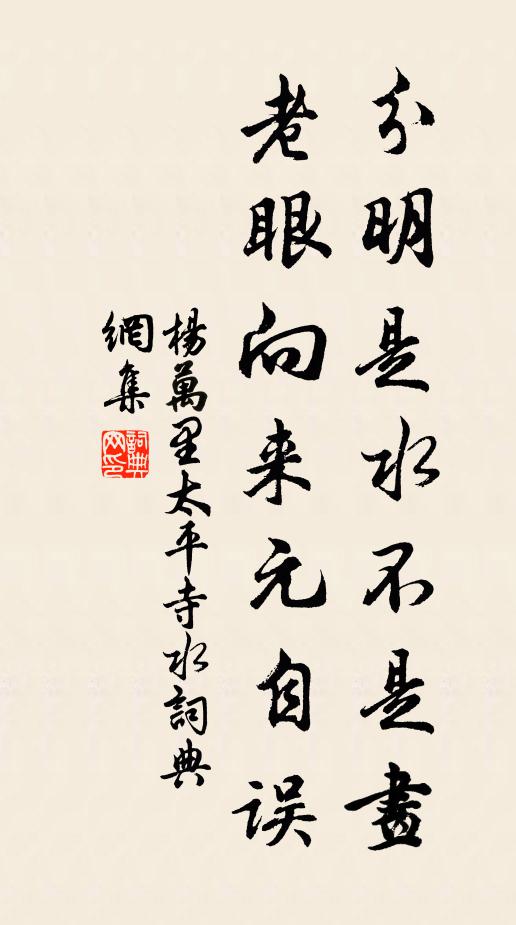 分明是水不是畫
老眼向来元自误
楊萬里太平寺水詞典
網集
詞典
网印